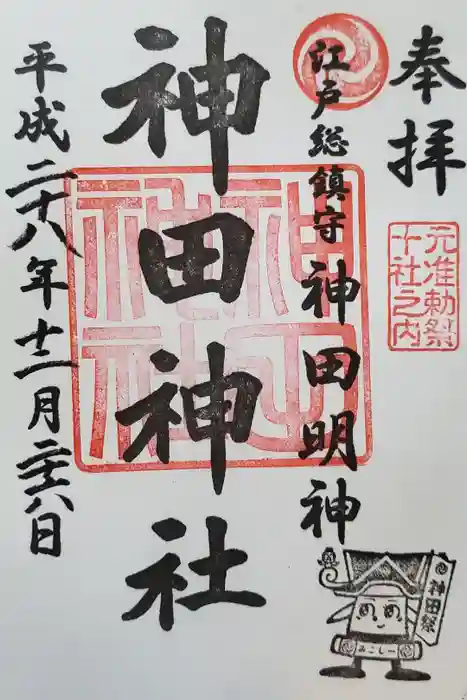 奉拝
元准勅祭
十社之内
江戸総鎮守 神田明神
神田神社
平成二十八年十二月二十八日
神田祭
みこしー